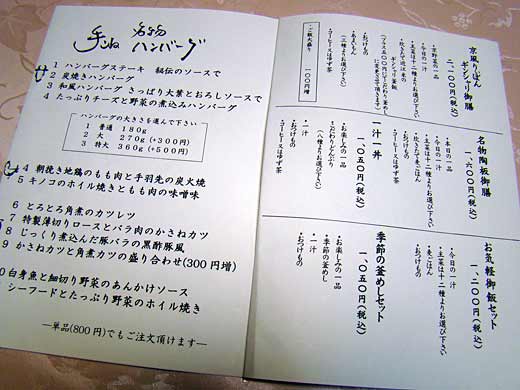 名物
手ごね ハンバーグ
1 ハンバーグステーキ 秘伝のソースで
2 炭焼きハンバーグ
3 和風ハンバーグ さっぱり大葉とおろしソースで
4 たっぷりチーズと野菜の煮込みハンバーグ
ハンバーグの大きさを選んで下さい
1 普通 180g
2 大 270g(+300円)
3 特大 360g(+500円)
4 朝挽き地鶏のもも肉と手羽先の炭火焼
5 キノコのホイル焼きともも肉の味噌味
6 とろとろ角煮のカツレツ
7 特製薄切りロースとバラ肉のかさねカツ
8 じっくり煮込んだ豚バラの黒酢豚風
9 かさねカツと角煮カツの盛り合わせ(300円増)
0 白身魚と細切り野菜のあんかけソース
シーフードとたっぷり野菜のホイル焼き
―単品(800円)でもご注文頂けます―
京風りっぱん
ギンシャリ御膳
二、一〇〇円(税込)
・今日の一汁
・主菜は十二種よりお選び下さい
・おつけもの
・コーヒー又はゆず茶
・ご飯大盛り 一〇〇円増
名物陶板御膳
一、六〇〇円(税込)
・本日の一品
・今日の一汁
・主菜は十二種よりお選び下さい
・炊きたて麦ごはん
・おつけもの
・コーヒー又はゆず茶
一汁一丼
一、〇五〇円(税込)
・お楽しみの一品
・一汁
・こだわりどんぶり
(八種よりお選び下さい)
・おつけもの
・コーヒー又はゆず茶
お気軽御飯セット
一、二〇〇円(税込)
・今日の一汁
・主菜は十二種よりお選び下さい
・麦ごはん
・おつけもの
季節の釜めしセット
一、〇五〇円(税込)
・お楽しみの一品
・季節の釜めし
・一汁
・おつけもの